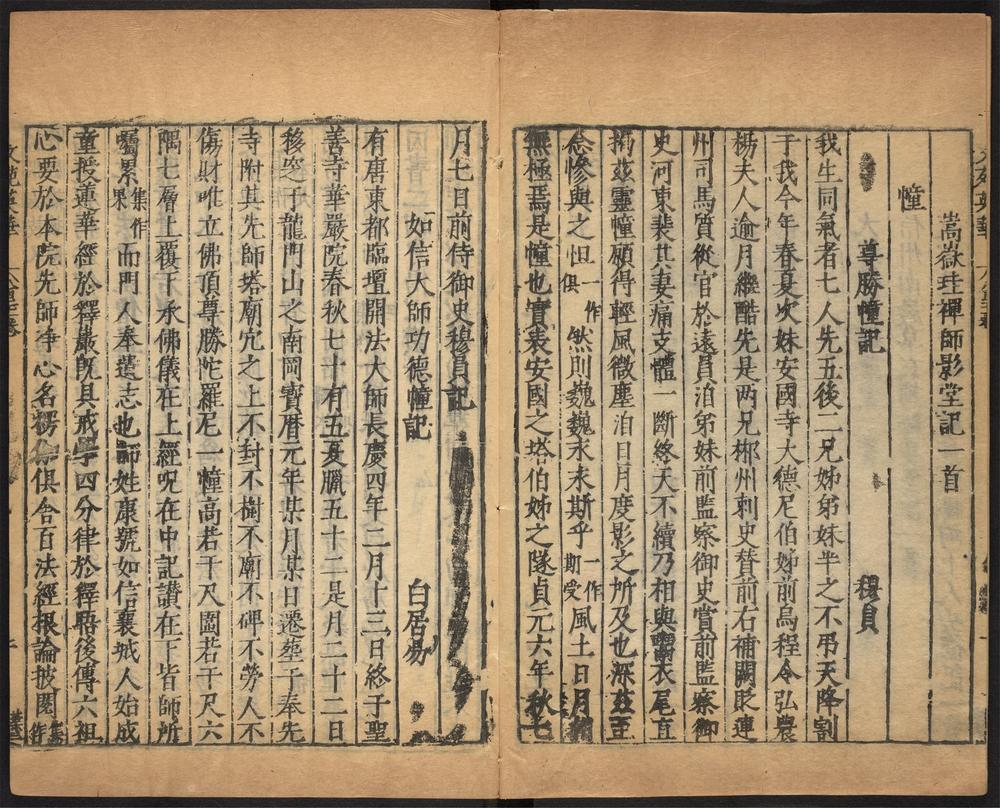 嵩嶽珪禪師影堂記一首
幢
尊勝幢記 穆員
我生同氣者七人先五後二兄姊弟妹半之不弔天降割
于我今年春夏次妹安國寺大德尼伯姊前烏程令弘農
楊夫人逾月繼酷先是兩兄郴州刺史贊前右補闕貶連
州司馬質從官於遠員泊弟妹前監察御史賞前監察御
史河東裴其妻痛支體一斷終天不續乃相與斸衣尾直
揭茲靈幢願得輕風微塵泊日月度影之所及也深茲至
念慘與之怛一作俱然則巍巍未来斯乎一作期受風土日月
無極焉是幢也實表安國之塔伯姊之隧貞元六年秋七
月七日前侍御史穆員記
如信大師功德幢記 白居易
有唐東都臨壇開法大師長慶四年三月十三日終于聖
善寺華嚴院春秋七十有五夏臘五十二是月二十二日
移窆于龍門山之南岡寶曆元年某月某日遷葬于奉先
寺附其先師塔廟穴之上不封不樹不廟不碑不勞人不
傷財唯立佛頂尊勝陀羅尼一幢高若干尺圎若干尺六
隅七層上覆下承佛儀在上經呪在中記讃在下皆師所
囑累集作累而門人奉遺志也師姓康號如信襄城人始成
童授蓮華經於釋巖旣具戒學四分律於釋晤後傳六祖
心要於本院先師净心名楞俱舍百法經根論披閱集作